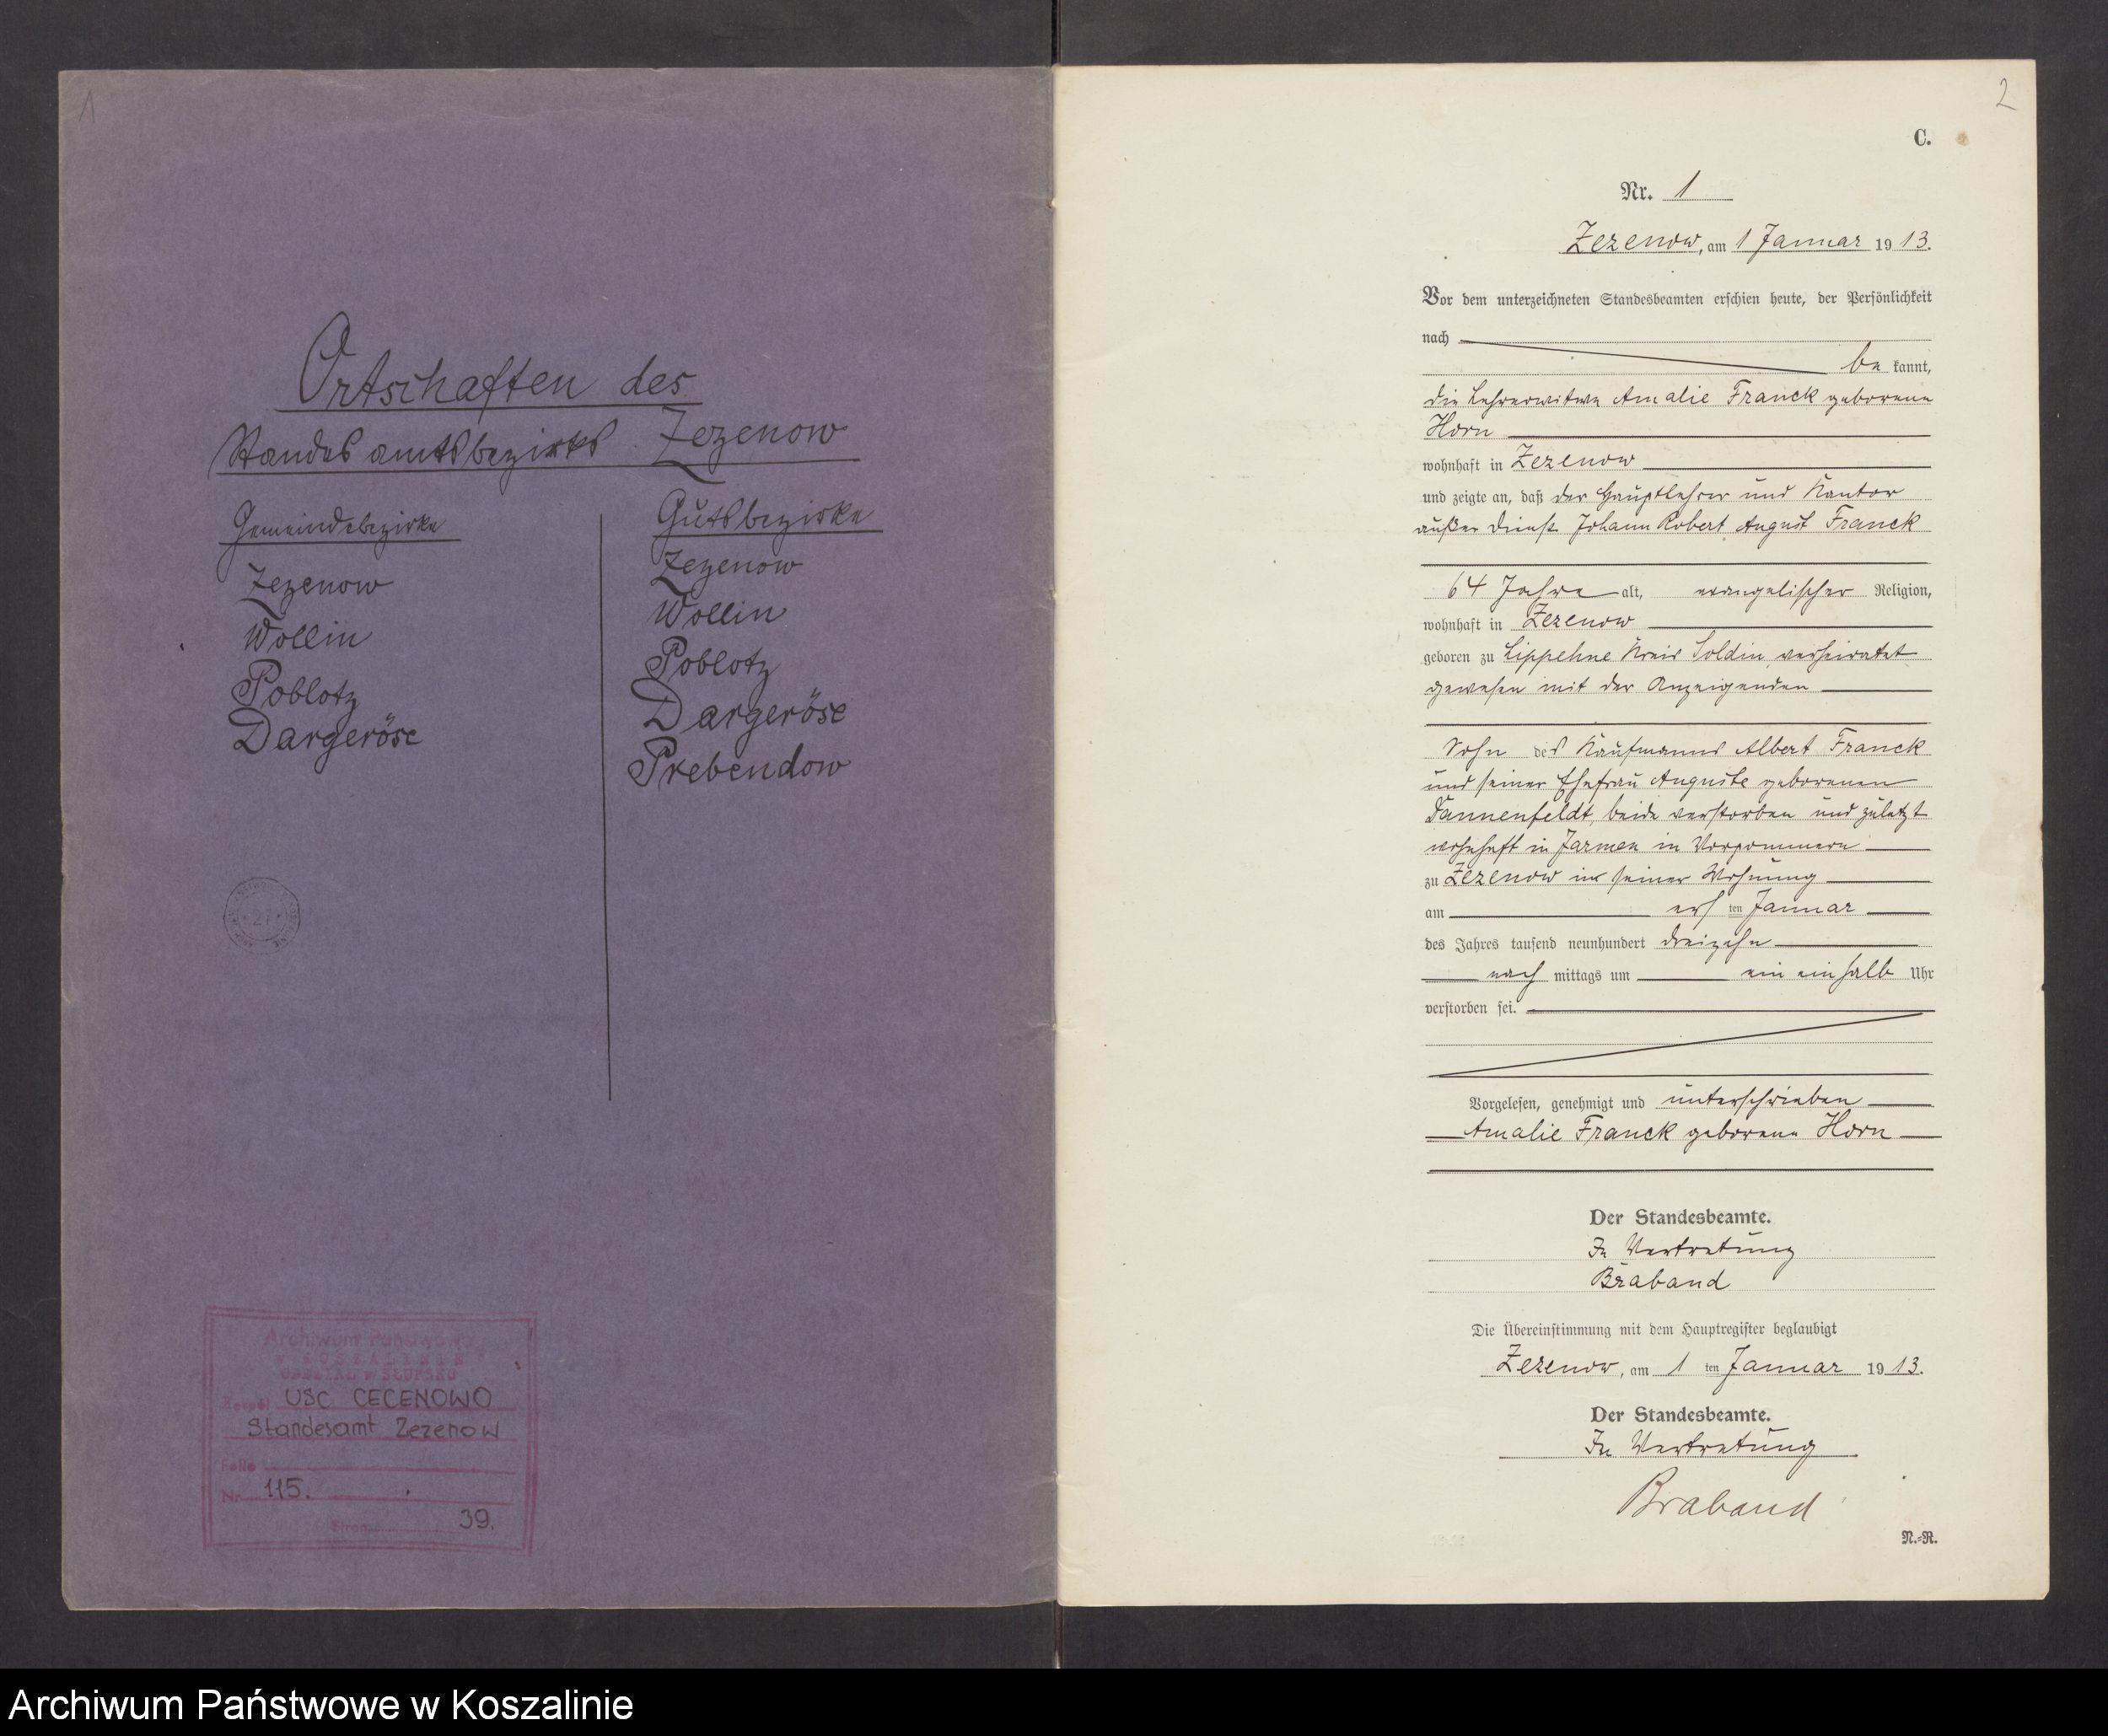 1
Ortschaften des
Standesamtsbezirks Zezenow
Gemeindebezirke
Zezenow
Wollin
Poblotz
Dargeröse
Gutsbezirke
Zezenow
Wollin
Poblotz
Dargeröse
Prebendow
27
Archiwum Państwowe
w KOSZALINIE
ODDZIAŁ w SŁUPSKU
Zespół USC CECENOWO
Standesamt Zezenow
Nr 115.
Stron 39.
2
C.
Nr. 1
Zezenow, am 1 Januar 1913.
Vor dem unterzeichneten Standesbeamten erschien heute, der Persönlichkeit
nach
be kannt,
die Lehrerwitwe Amalie Franck geborene
Horn
wohnhaft in Zezenow
und zeigte an, daß der Hauptlehrer und Kantor
außer Dienst Johann Robert August Franck
64 Jahre alt, evangelischer Religion,
wohnhaft in Zezenow
geboren zu Lippehne Kreis Soldin, verheiratet
gewesen mit der Anzeigenden
Sohn des Kaufmanns Albert Franck
und seiner Ehefrau Auguste geborenen
Tannenfeldt, beide verstorben und zuletzt
wohnhaft in Jarmen in Vorpommern
zu Zezenow in seiner Wohnung
am ersten Januar
des Jahres tausend neunhundert dreizehn
nach mittags um ein einhalb Uhr
verstorben sei.
Vorgelesen, genehmigt und unterschrieben
Amalie Franck geborene Horn
Der Standesbeamte.
In Vertretung
Braband
Die Übereinstimmung mit dem Hauptregister beglaubigt
Zezenow, am 1 ten Januar 1913.
Der Standesbeamte.
In Vertretung
Braband
N.-R.
Archiwum Państwowe w Koszalinie